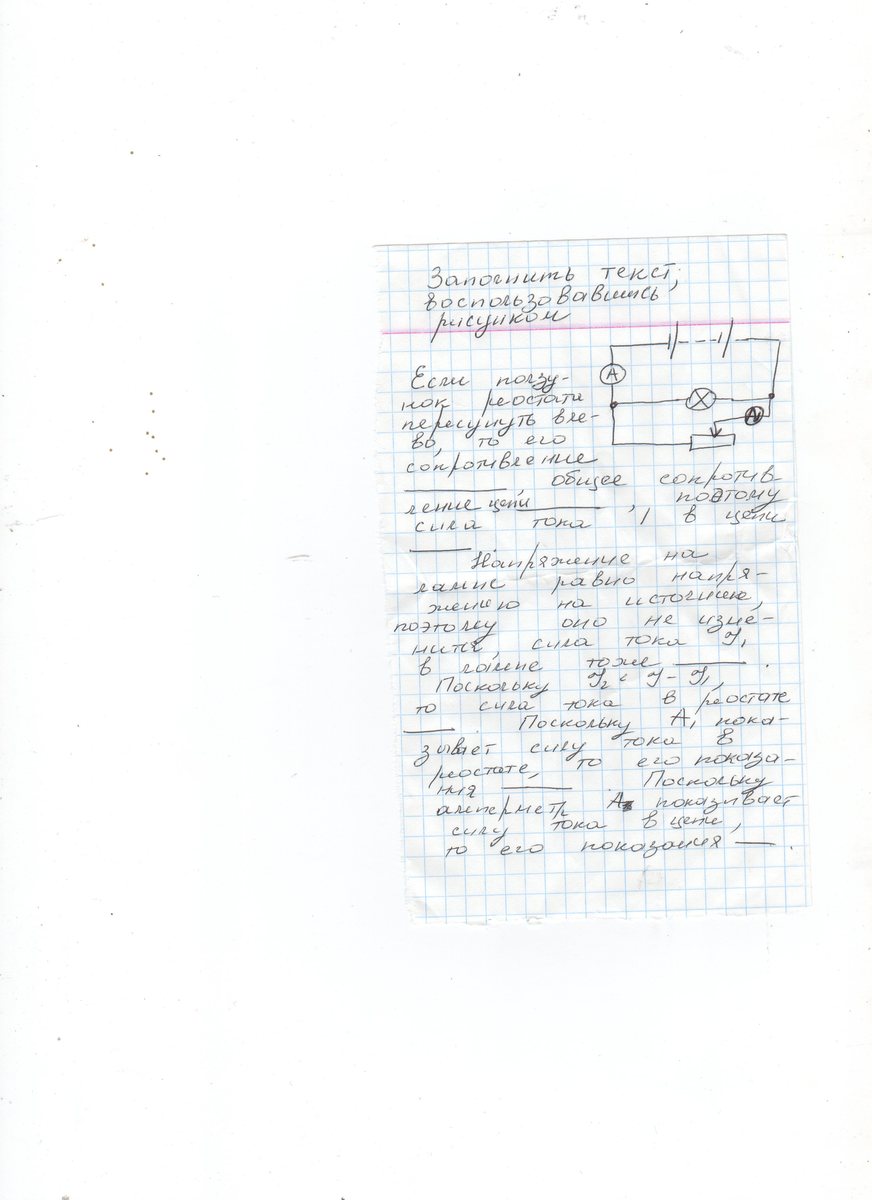 Заполнить текст,
воспользовавшись
рисунком
A
A1
Если ползу-
нок реостата
пересунуть вле-
во, то его
сопротивление
_______, общее сопротив-
ление цепи _______, поэтому
сила тока I в цепи
_____. Напряжение на
лампе равно напря-
жению на источнике,
поэтому оно не изме-
нится, сила тока I1
в лампе тоже _____.
Поскольку I2 = I - I1,
то сила тока в реостате
____. Поскольку A1 пока-
зывает силу тока в
реостате, то его показа-
ния _____. Поскольку
амперметр A показывает
силу тока в цепи,
то его показания ___.